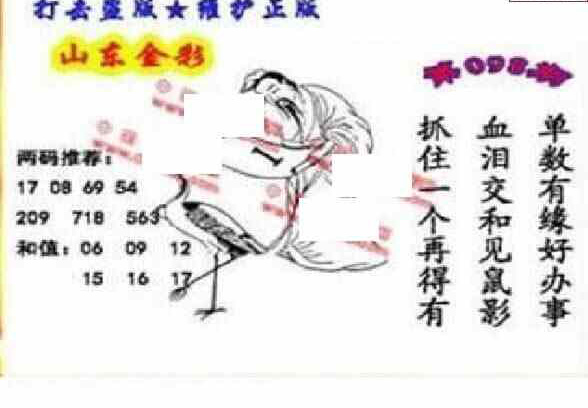 打击盗版★维护正版
山东金彩
第098期
两码推荐:
17 08 69 54
209 718 563
和值: 06 09 12
15 16 17
1
单数有缘好办事
血泪交和见鼠影
抓住一个再得有